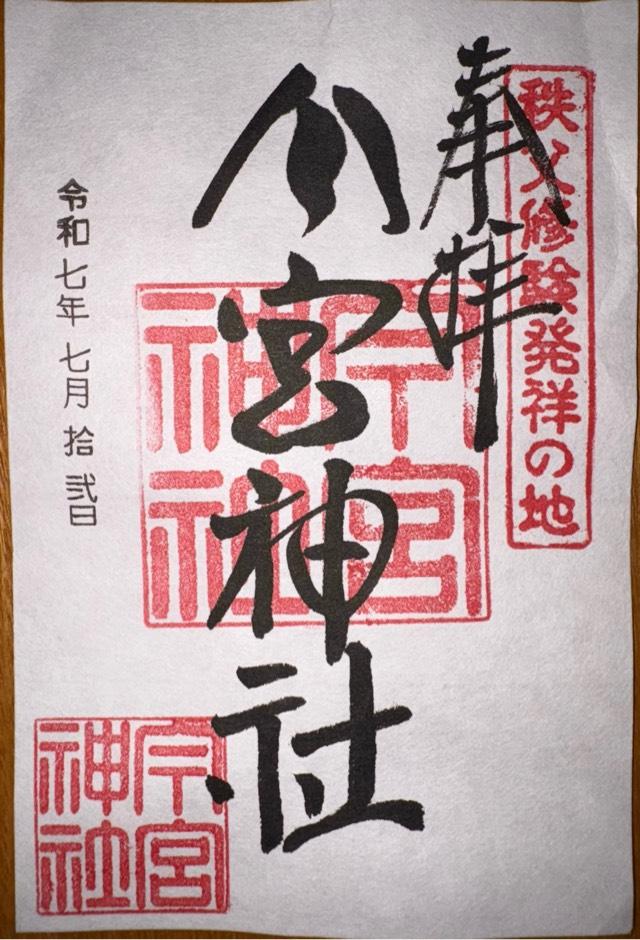 秩父修験発祥の地
奉拝
今宮神社
今宮
神社
令和七年七月拾弐日
今宮
神社